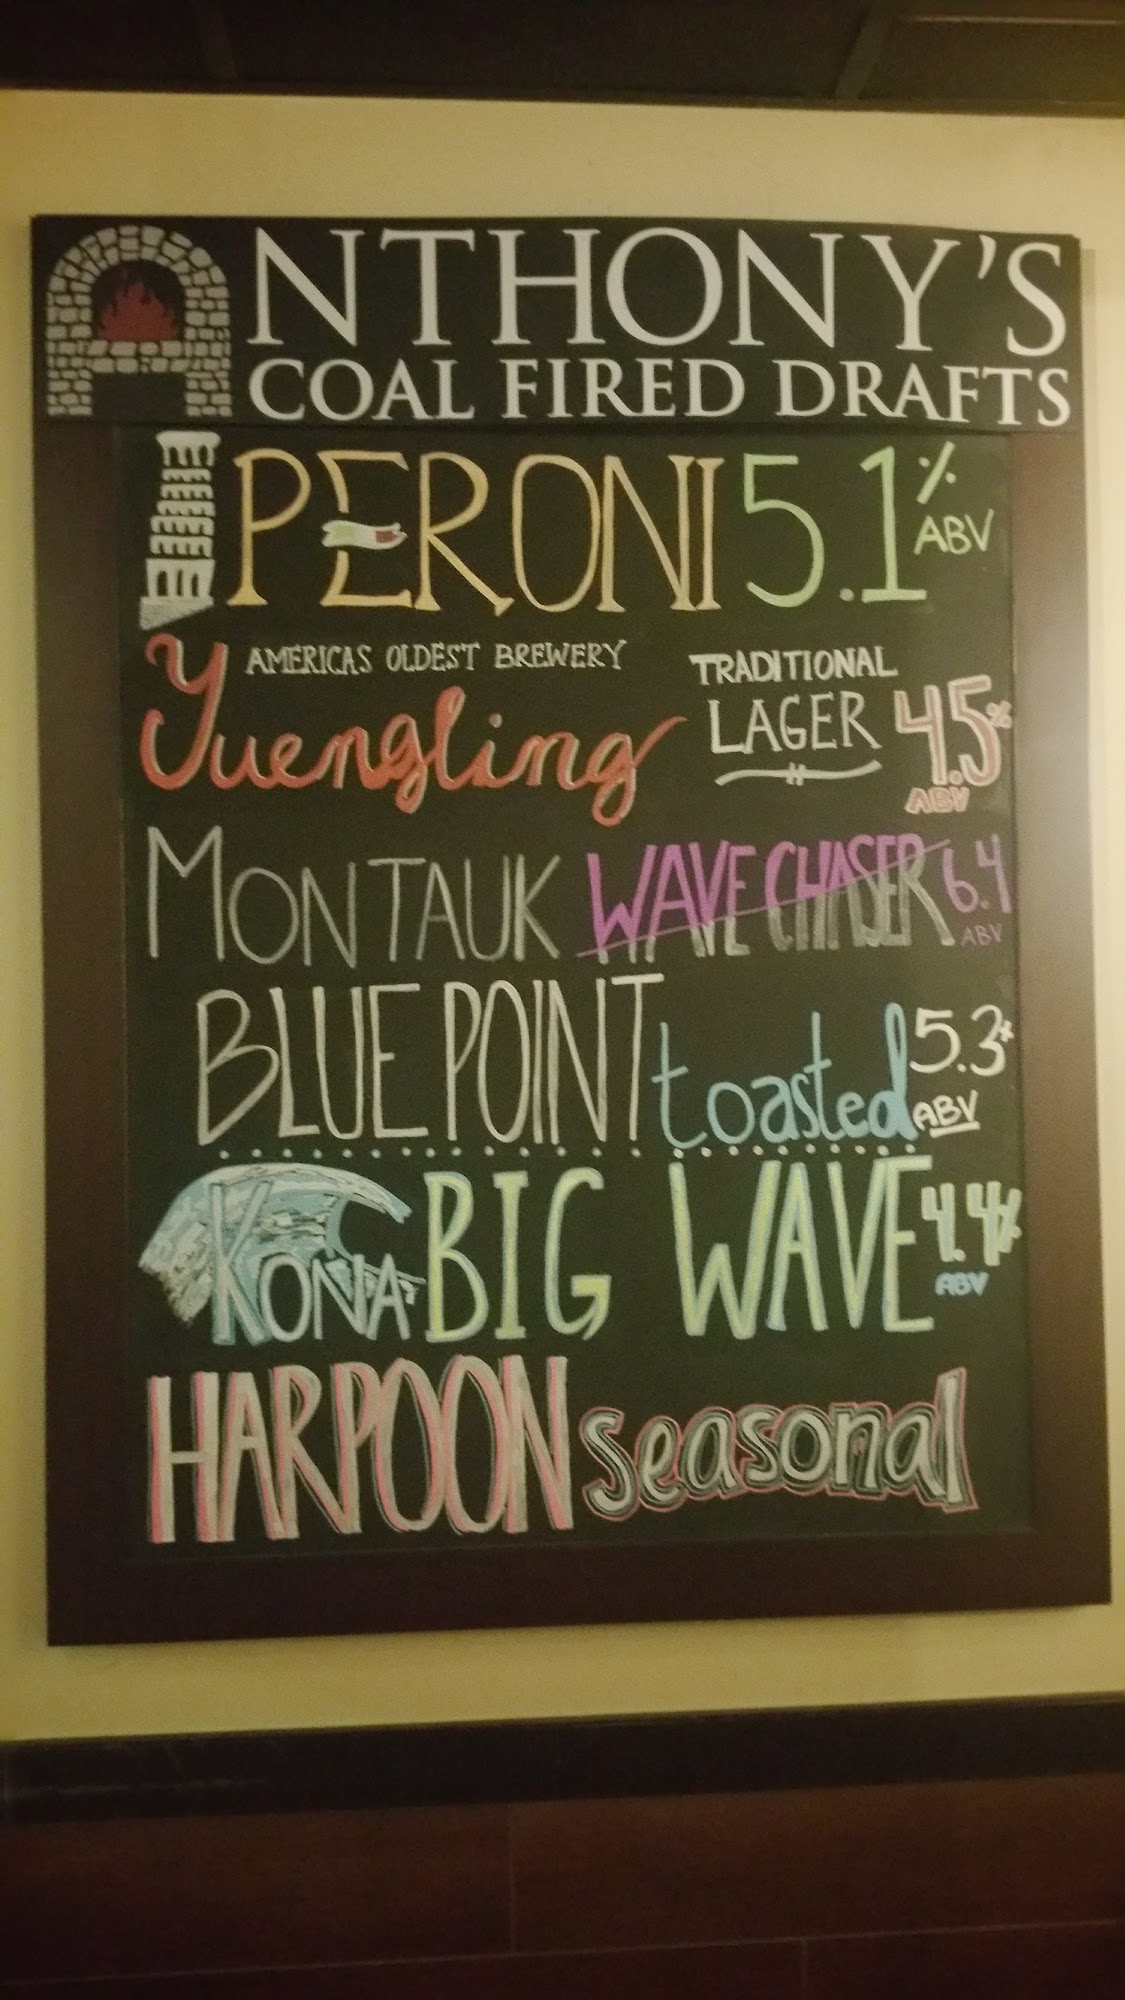 ANTHONY'S
COAL FIRED DRAFTS
PERONI 5.1% ABV
AMERICAS OLDEST BREWERY
Yuengling TRADITIONAL LAGER 4.5% ABV
MONTAUK WAVE CHASER 6.4 ABV
BLUE POINT toasted 5.3% ABV
KONA BIG WAVE 4.4% ABV
HARPOON seasonal